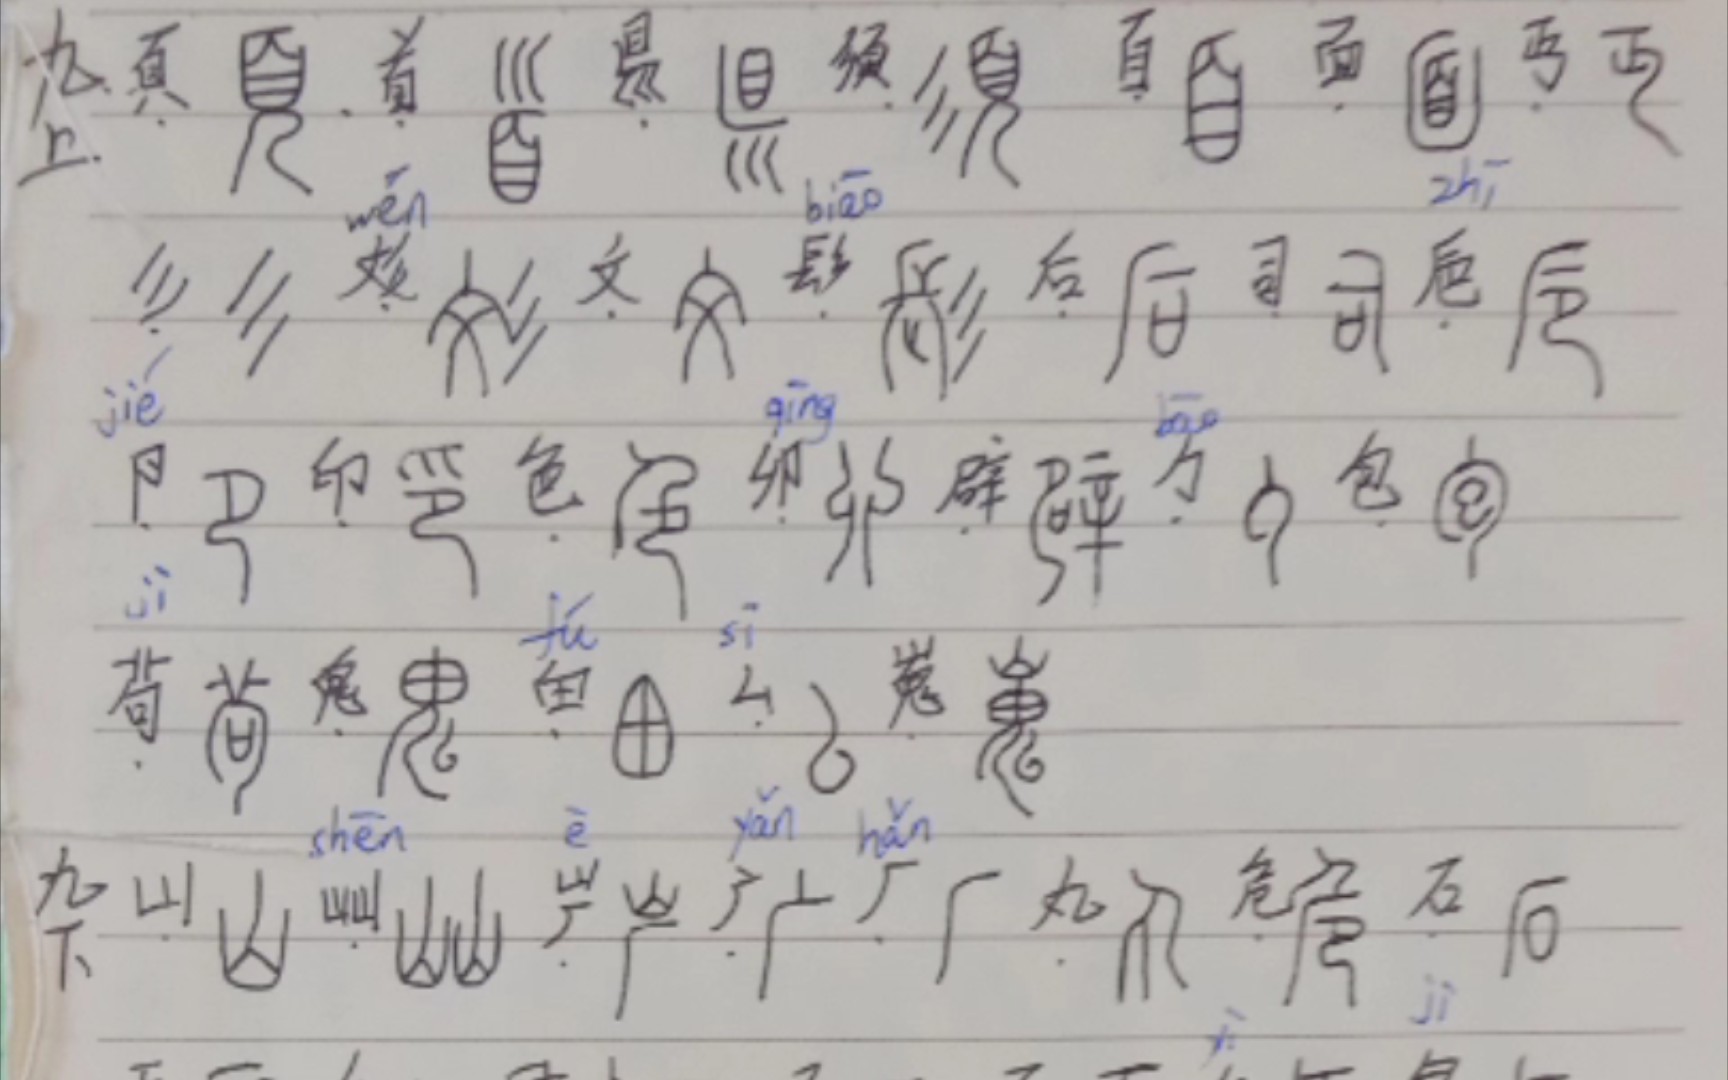 九上 頁 首 県 須 𦣻 面 丏
wén biāo zhī
彡 彣 文 髟 后 司 卮
jié qīng bāo
卩 印 色 卯 辟 勹 包
jì fú sī
茍 鬼 甶 厶 嵬
shēn è yǎn hǎn
九下 山 屾 屵 广 厂 丸 危 石
jì